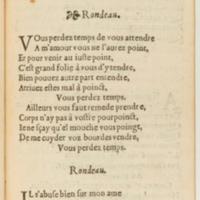 Rondeau.
VOus perdez temps de vous attendre
A m'amour vous ne l'aurez point,
Et pour venir au iuste point,
C'est grand folie à vous d'y tendre,
Bien pouuez autre part entendre,
Arriuez estes mal à poinct,
Vous perdez temps.
Ailleurs vous faut remede prendre,
Corps n'ay pas à vostre pourpoinct,
Ie ne sçay qu'el mouche vous poingt,
De me cuyder voz bourdes vendre,
Vous perdez temps.
Rondeau.
IL s'abuse bien sur mon ame